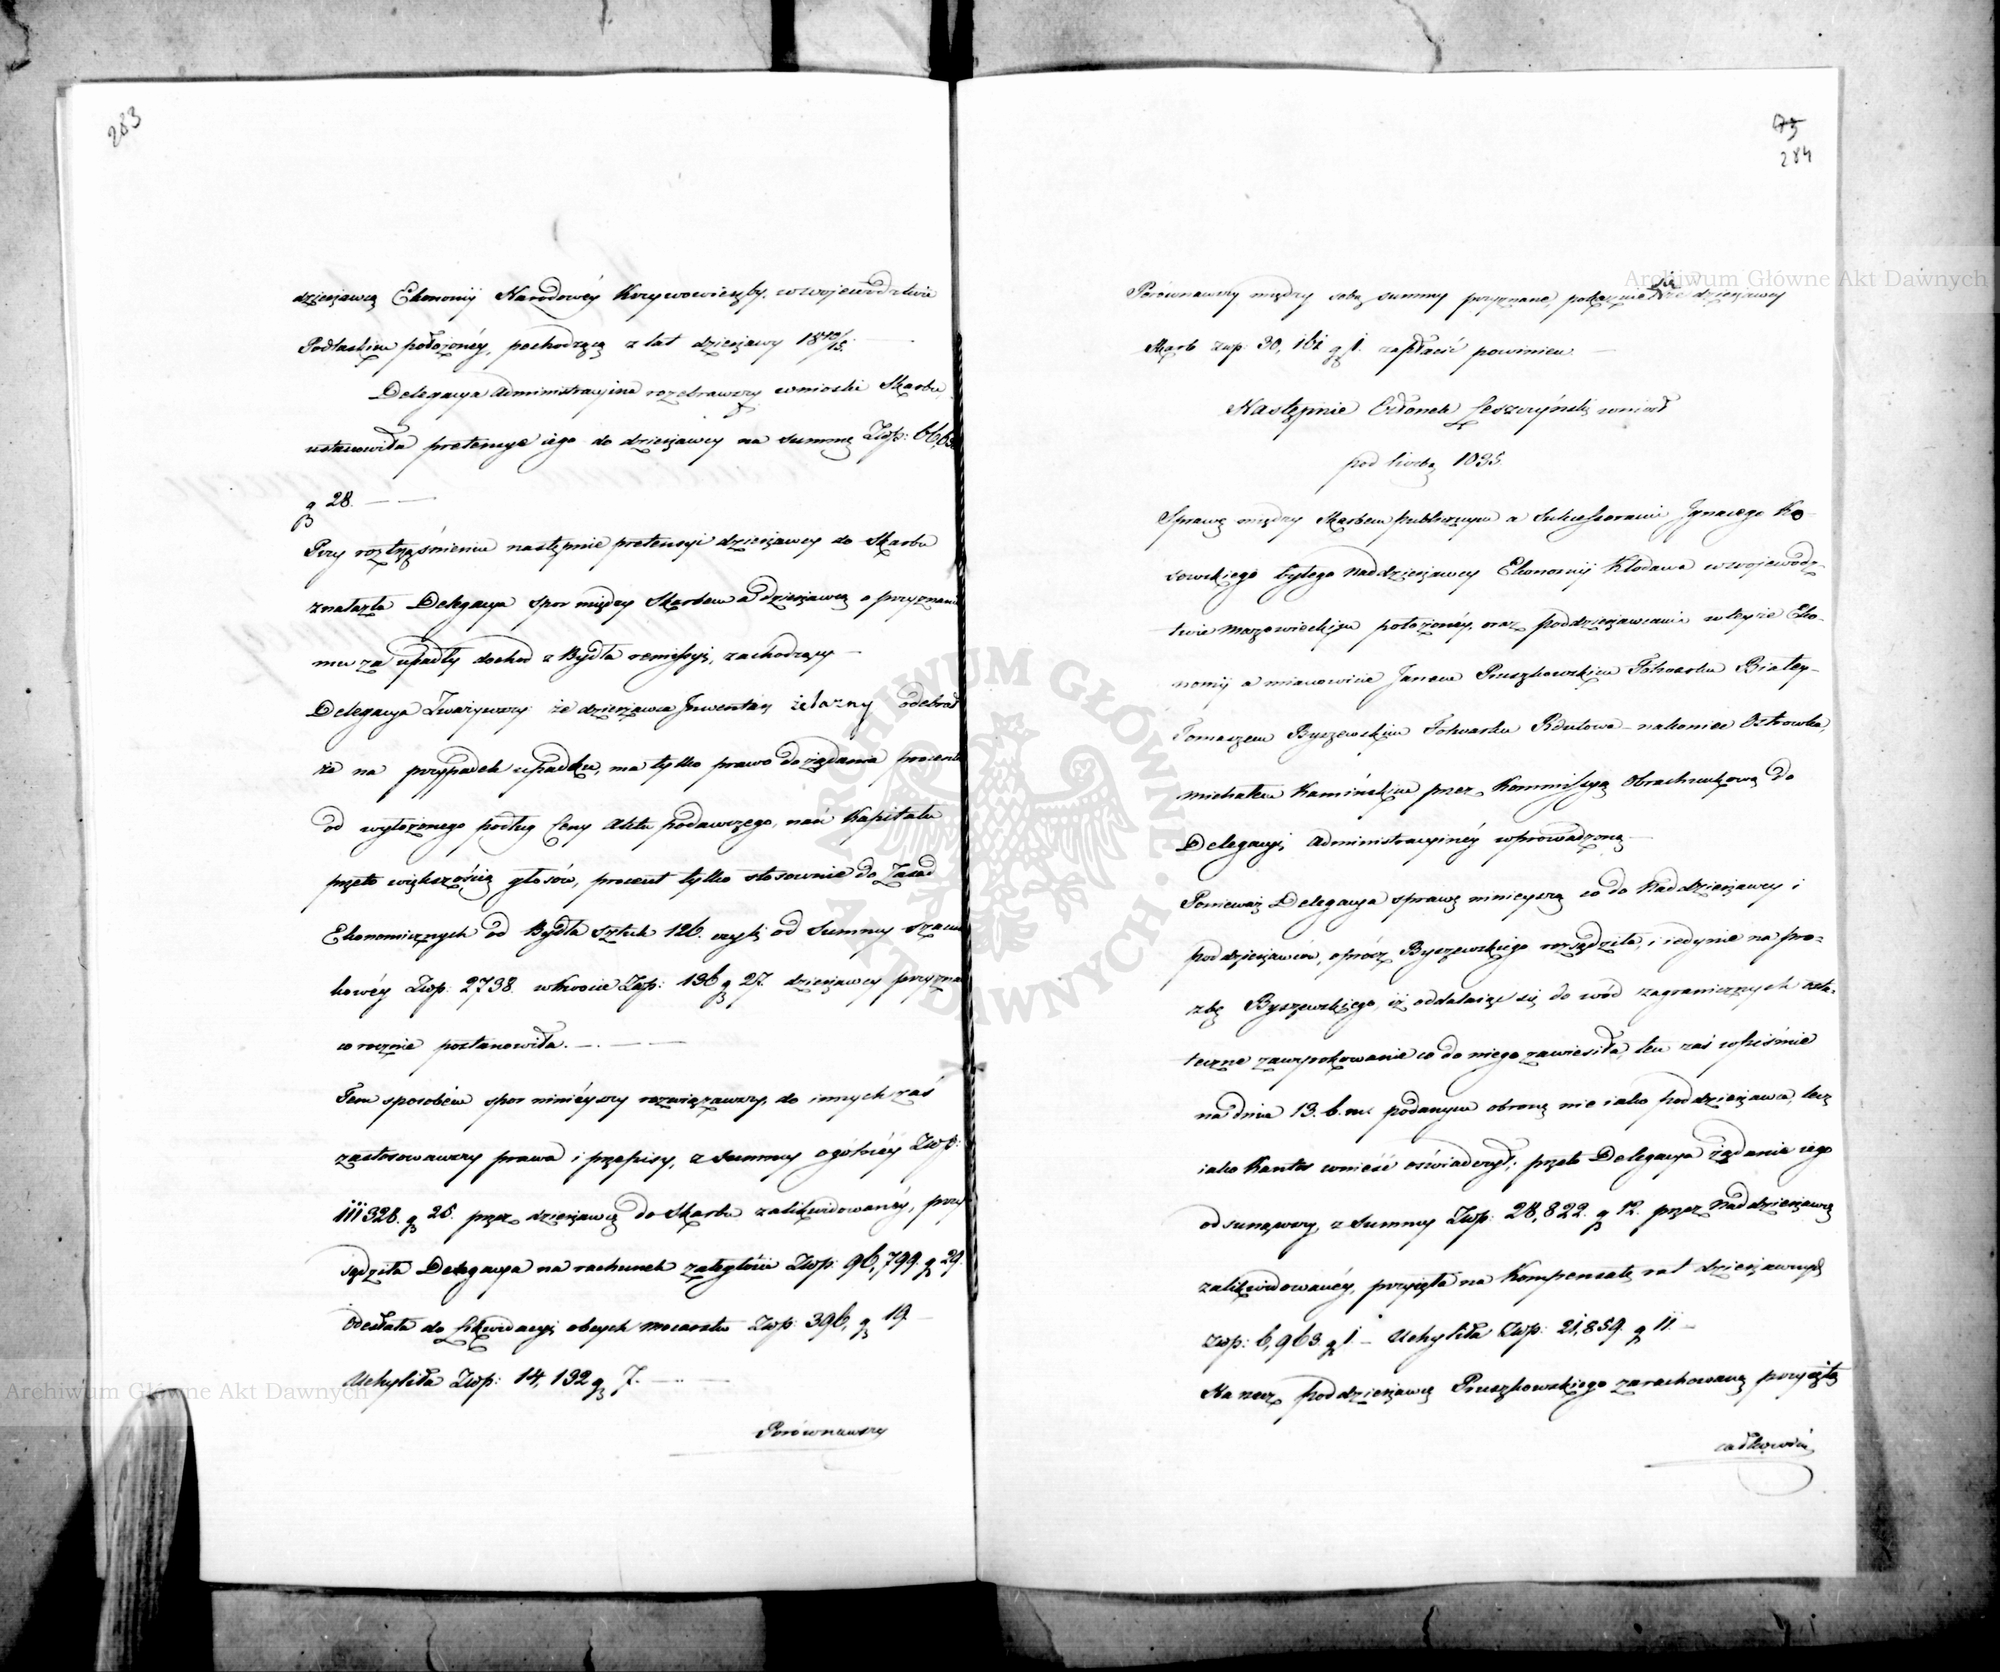 283
dzierżawcą Ekonomii Narodowéy Krzywowierzby, w wojewodztwie
Podlaskim położonéy, pochodzącą z lat dzierżawy 18 10/15.
Delegacya Administracyina rozebrawszy wnioski Skarbu
ustanowiła pretensye iego do dzierżawcy na summę Złp: 66,63
g 28. — —
Przy roztrząśnieniu następnie pretensyi dzierżawcy do Skarbu
znalazła Delegacya spor między Skarbem a dzierżawcą o przyznanie
mu za upadły dochod z Bydła remissyi, zachodzący —
Delegacya Zważywszy że dzierżawca Inwentarz żelazny odebrał
że na przypadek upadku, ma tylko prawo do żądania procentu
od wyłożonego podług Ceny Aktu podawczego, nań Kapitału
przeto większością głosów, procent tylko stosownie do Zasad
Ekonomicznych od Bydła sztuk 126. czyli od Summy szacun
kowéy Złp: 2738. w kwocie Złp: 136 g 27. dzierżawcy przyzna
corocznie postanowiła. — . —
Tem sposobem spor ninieyszy rozwiązawszy, do innych zaś
zastosowawszy prawa i przepisy, z Summy ogólnéy Złp:
111328. g 25. przez dzierżawcę do Skarbu zalikwidowanéy, przy
sądziła Delegacya na rachunek zaległości Złp: 96,799. g 29.
Odesłała do Likwidacyi obcych mocarstw Złp: 396, g 19. —
Uchyliła Złp: 14,132 g 7. — . —
Porównawszy
75
284
Porównawszy między sobą summy przyznane, pokazuie się że dzierżawcy
Skarb Złp: 30,161 g 1. zapłacić powinien. —
Następnie Członek Leszczyński wniosł
pod liczbą 1035.
Sprawę między Skarbem publicznym a Sukcessorami Ignacego Ko-
sowskiego byłego Naddzierżawcy Ekonomii Kłodawa w wojewódz-
twie Mazowieckiem położonéy, oraz poddzierżawcami w teyże Eko-
nomii a mianowicie Janem Pruszkowskim Folwarku Białey-
Tomaszem Byszewskim Folwarku Rdutowa — nakoniec Ostrowka,
Michałem Kamińskim przez Kommissyą Obrachunkową do
Delegacyi Administracyinéy wprowadzoną —
Ponieważ Delegacya sprawę ninieyszą co do Naddzierżawcy i
poddzierżawców, oprócz Byszewskiego rozsądziła, i iedynie na pro-
zbę Byszewskiego, iż oddalaiąc się do wód zagranicznych osta-
teczne zawyrokowanie co do niego zawiesiła, ten zaś w piśmie
na dniu 13. b. m. podanym obronę nie iako poddzierżawca, lecz
iako Kantor wnieść oświadczył; przeto Delegacya żądanie iego
odsunąwszy, z Summy Złp: 28,822. g 12. przez Naddzierżawcę
zalikwidowanéy, przyięła na Kompensatę rat dzierżawnych
Złp: 6,963. g 1 — Uchyliła Złp: 21,859. g 11. —
Na rzecz poddzierżawcy Pruszkowskiego zarachowaną przyięła
całkowicie
Archiwum Główne Akt Dawnych
Archiwum Główne Akt Dawnych
ARCHIWUM GŁÓWNE AKT DAWNYCH